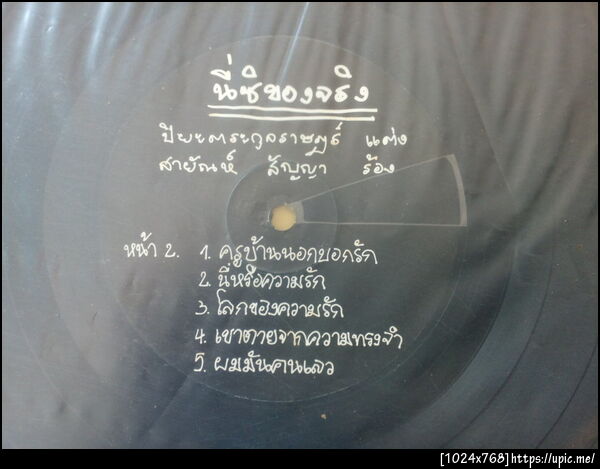 นี่ซิของจริง
ปิยะตระกูลราษฎร์ แต่ง
สายัณห์ สัญญา ร้อง
หน้า 2. 1. ครูบ้านนอกบอกรัก
2. นี่หรือความรัก
3. โลกของความรัก
4. เขาตายจากความทรงจำ
5. ผมมันคนเลว
[1024x768]https://upic.me/